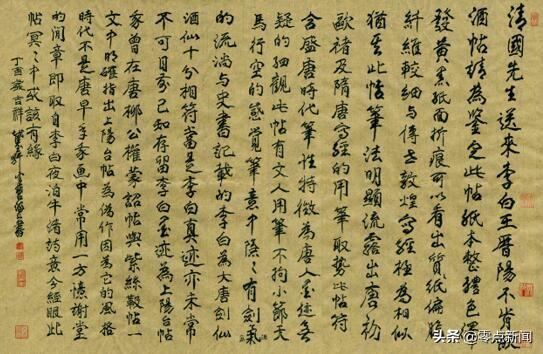 清國先生送來李白王曆陽不肯飲
酒帖請為鑒定此帖紙本整體色澤
發黄黑紙面折痕可以看出質紙偏
纤維較細与傳世敦煌寫經極為相似
此帖筆法明顯流露出唐初
歐褚及隋唐寫經的用筆取勢此帖符
合盛唐時代筆性特徵為唐人墨迹無
疑的細觀此帖有文人用筆不拘小節天
馬行空的感覺筆意中隱々有劍氣
的流淌与史書記載的李白為大唐劍仙
酒仙十分相符當是李白真迹亦未常
不可目前已知存留李白墨迹為上陽台帖
家曾在唐柳公權蒙詔帖與紫絲靸帖一
文中明確指出上陽台帖為偽作因為它的風格
時代不是唐早年家画中常用一方憶謝堂
的閒章即取自李白夜泊牛渚懷古今經眼此
帖冥々中或該有緣
丁酉歲吉祥
头条 @零点新闻